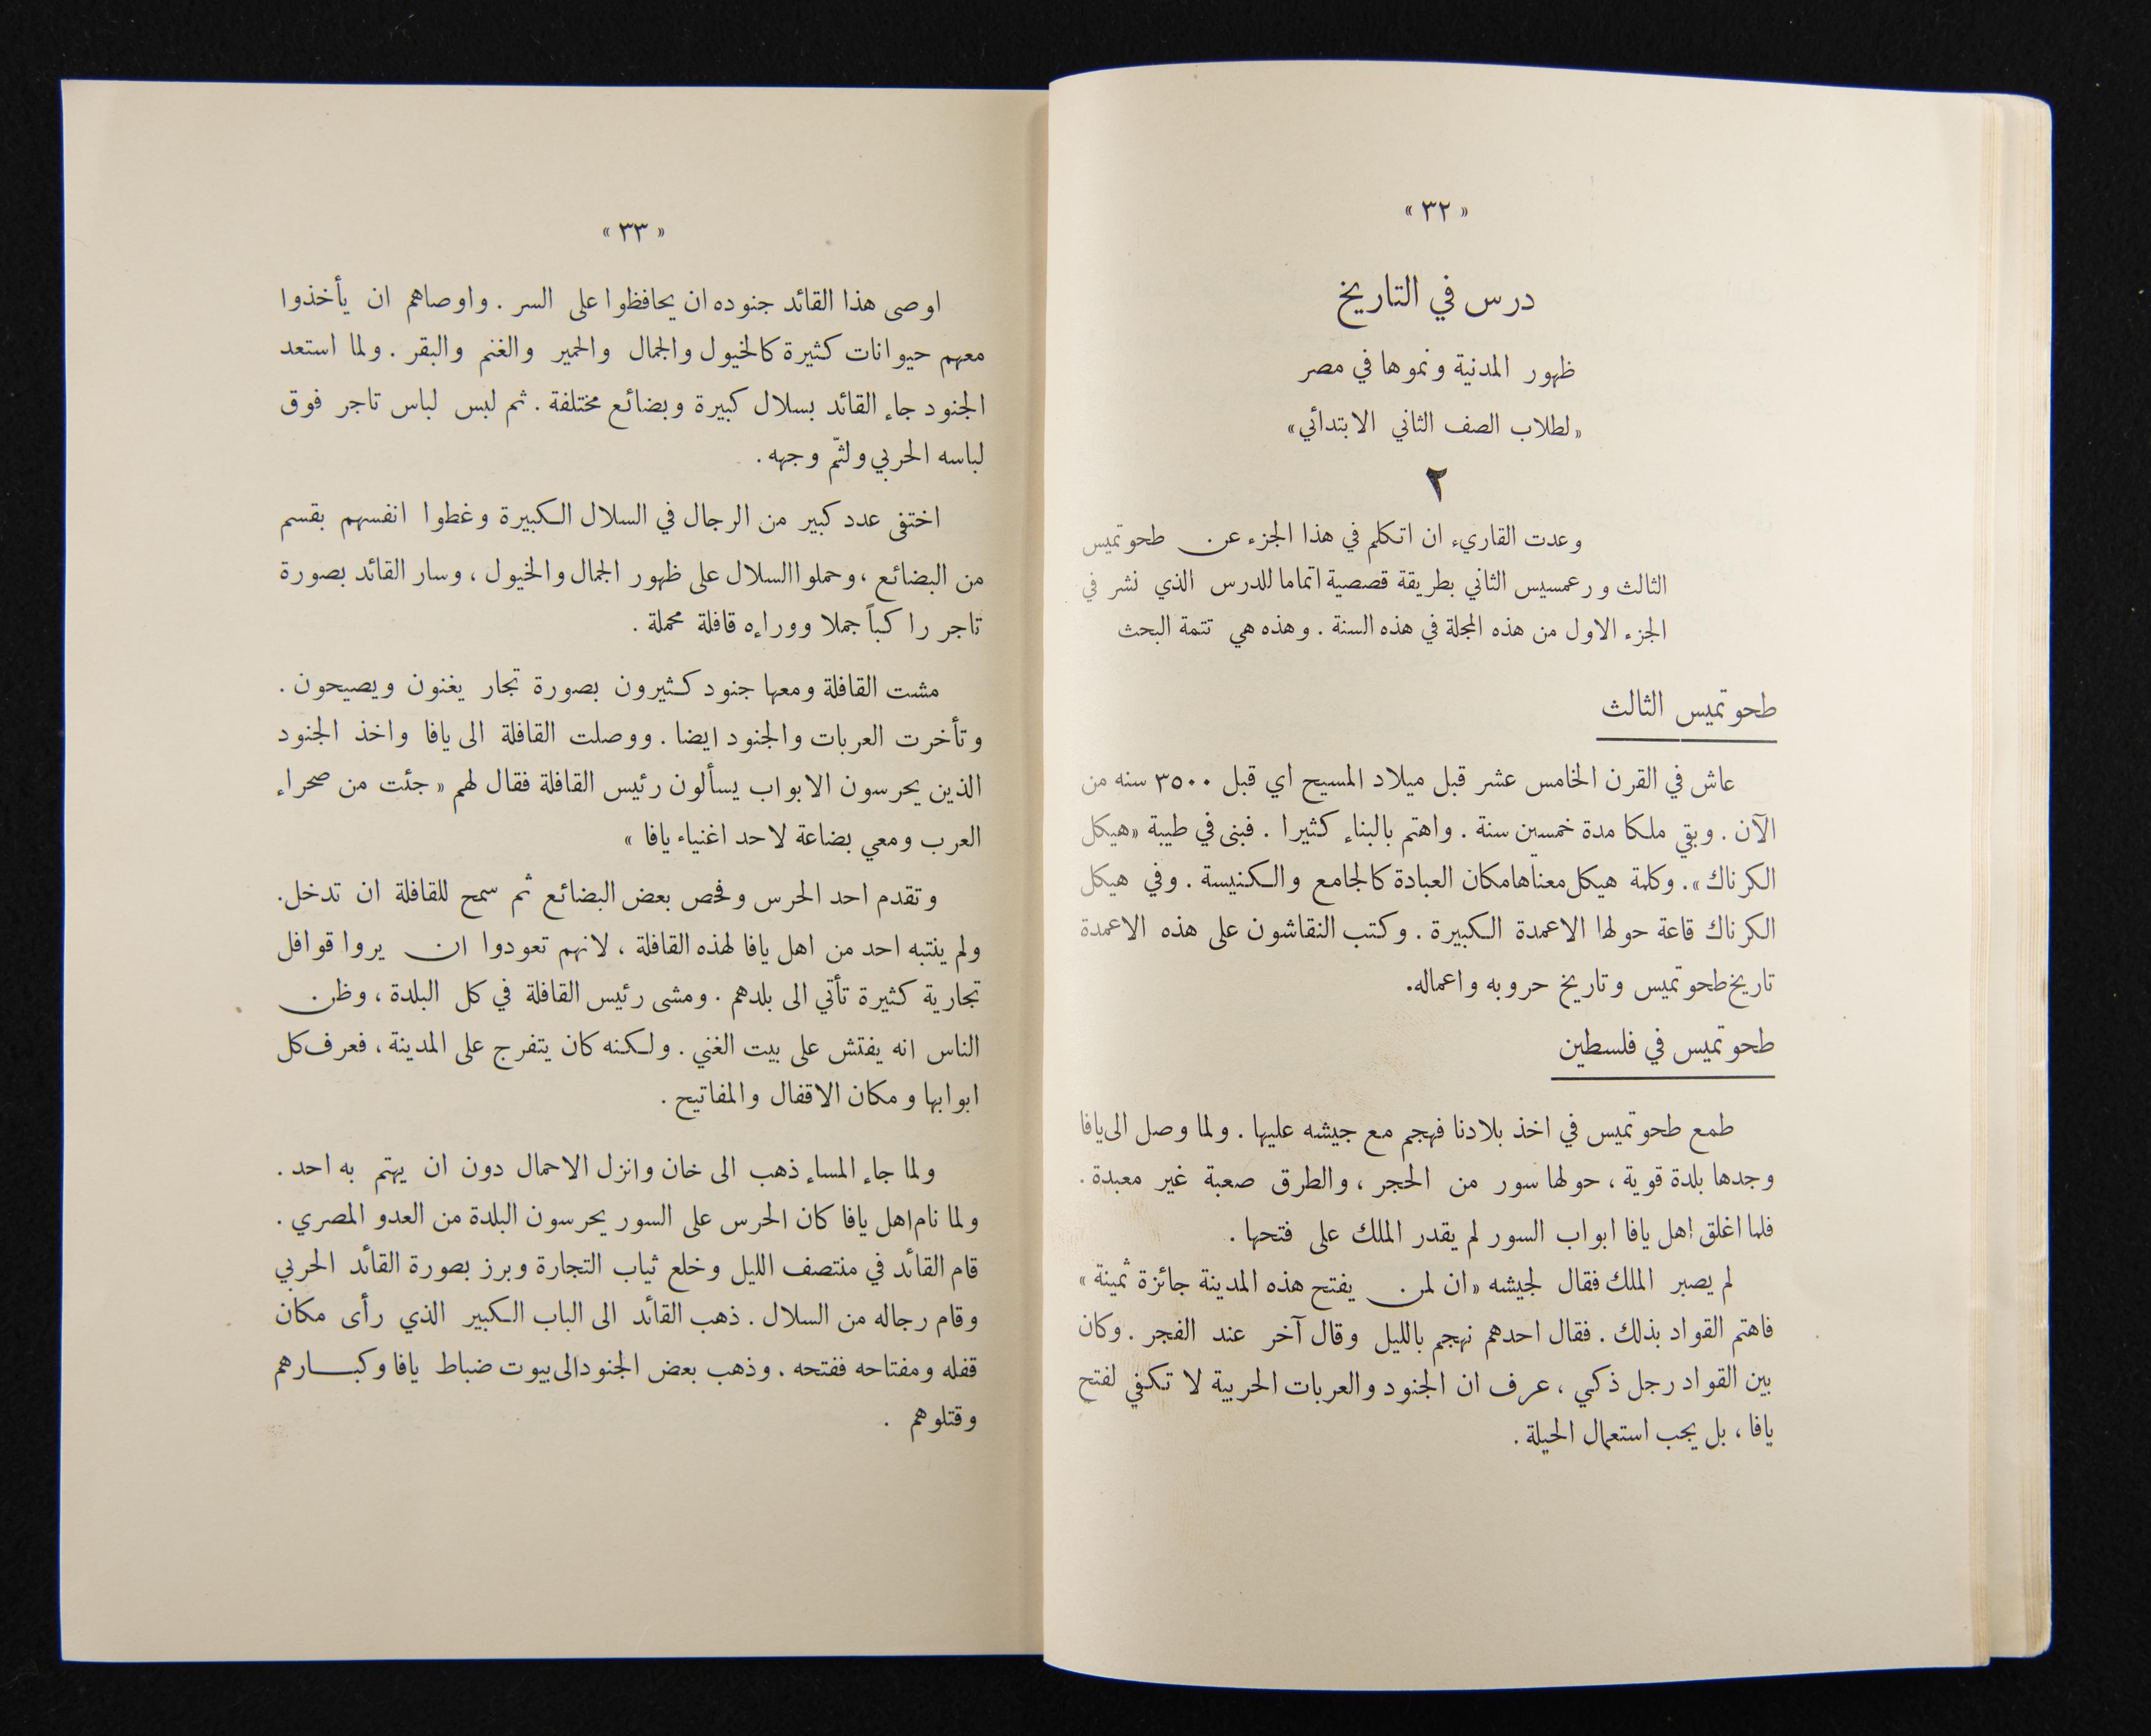 « ٣٢ »
درس في التاريخ
ظهور المدنية ونموها في مصر
«لطلاب الصف الثاني الابتدائي»
٢
وعدت القاريء ان اتكلم في هذا الجزء عن طحوتميس
الثالث ورعمسيس الثاني بطريقة قصصية اتماما للدرس الذي نشر في
الجزء الاول من هذه المجلة في هذه السنة . وهذه هي تتمة البحث
طحوتميس الثالث
عاش في القرن الخامس عشر قبل ميلاد المسيح اي قبل ٣٥٠٠ سنه من
الآن . وبقي ملكا مدة خمسين سنة . واهتم بالبناء كثيرا . فبنى في طيبة «هيكل
الكرناك» . وكلمة هيكل معناها مكان العبادة كالجامع والكنيسة . وفي هيكل
الكرناك قاعة حولها الاعمدة الكبيرة . وكتب النقاشون على هذه الاعمدة
تاريخ طحوتميس وتاريخ حروبه واعماله.
طحوتميس في فلسطين
طمع طحوتميس في اخذ بلادنا فهجم مع جيشه عليها . ولما وصل الى يافا
وجدها بلدة قوية ، حولها سور من الحجر ، والطرق صعبة غير معبدة .
فلما اغلق اهل يافا ابواب السور لم يقدر الملك على فتحها .
لم يصبر الملك فقال لجيشه «ان لمن يفتح هذه المدينة جائزة ثمينة »
فاهتم القواد بذلك . فقال احدهم نهجم بالليل وقال آخر عند الفجر . وكان
بين القواد رجل ذكي ، عرف ان الجنود والعربات الحربية لا تكفي لفتح
يافا ، بل يجب استعمال الحيلة .
« ٣٣ »
اوصى هذا القائد جنوده ان يحافظوا على السر . واوصاهم ان يأخذوا
معهم حيوانات كثيرة كالخيول والجمال والحمير والغنم والبقر . ولما استعد
الجنود جاء القائد بسلال كبيرة وبضائع مختلفة . ثم لبس لباس تاجر فوق
لباسه الحربي ولثّم وجهه .
اختفى عدد كبير من الرجال في السلال الكبيرة وغطوا انفسهم بقسم
من البضائع ، وحملوا السلال على ظهور الجمال والخيول ، وسار القائد بصورة
تاجر راكباً جملا ووراءه قافلة محملة .
مشت القافلة ومعها جنود كثيرون بصورة تجار يغنون ويصيحون .
وتأخرت العربات والجنود ايضا . ووصلت القافلة الى يافا واخذ الجنود
الذين يحرسون الابواب يسألون رئيس القافلة فقال لهم « جئت من صحراء
العرب ومعي بضاعة لاحد اغنياء يافا »
وتقدم احد الحرس وفحص بعض البضائع ثم سمح للقافلة ان تدخل.
ولم ينتبه احد من اهل يافا لهذه القافلة ، لانهم تعودوا ان يروا قوافل
تجارية كثيرة تأتي الى بلدهم . ومشى رئيس القافلة في كل البلدة ، وظن
الناس انه يفتش على بيت الغني . ولكنه كان يتفرج على المدينة ، فعرف كل
ابوابها ومكان الاقفال والمفاتيح .
ولما جاء المساء ذهب الى خان وانزل الاحمال دون ان يهتم به احد .
ولما نام اهل يافا كان الحرس على السور يحرسون البلدة من العدو المصري .
قام القائد في منتصف الليل وخلع ثياب التجارة وبرز بصورة القائد الحربي
وقام رجاله من السلال . ذهب القائد الى الباب الكبير الذي رأى مكان
قفله ومفتاحه ففتحه . وذهب بعض الجنود الى بيوت ضباط يافا وكبارهم
وقتلوهم .